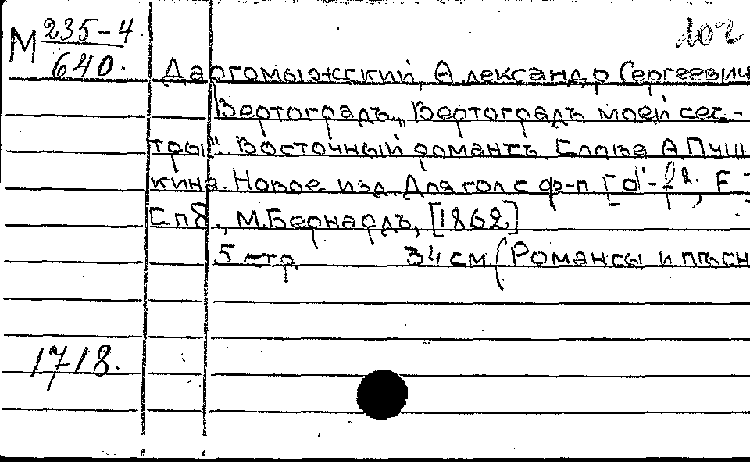 М 235-4
640.
102
Даргомыжский, Александр Сергеевич
Вертоградъ. „Вертоградъ моей сес-
тры". Восточный романсъ. Слова А Пуш
кина. Новое изд. Для гол с ф-п. [d'-f2, F
Спб., М. Бернардъ, [1862]
5 стр. 34 см (Романсы и пѣсн
1718.